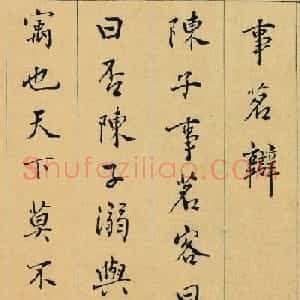 事茗辯
陳子事茗客曰
曰否陳子溺與
寓也天下莫不
Shufaziliao.com